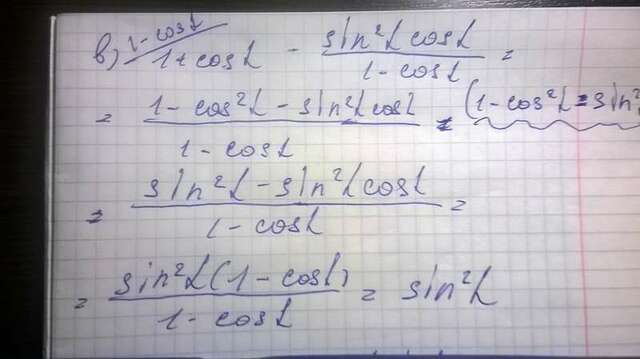 в) 1-cosα/ 1+cosα - sin²α cosα / 1-cosα =
= 1-cos²α-sin²α cosα / 1-cosα = (1-cos²α=sin²
= sin²α-sin²α cosα / 1-cosα =
= sin²α(1-cosα) / 1-cosα = sin²α